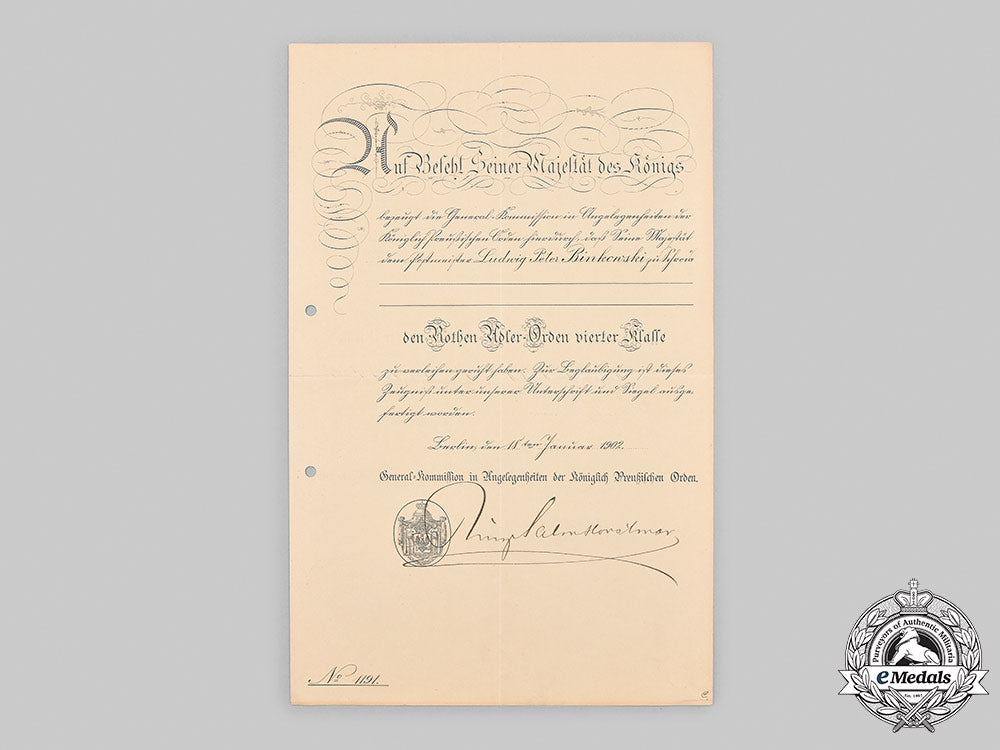 Auf Befehl Seiner Majestät des Königs
bezeugt die General-Kommission in Angelegenheiten der
Königlich Preußischen Orden hierdurch, daß Seine Majestät
dem Postmeister Ludwig Peter Binkowski zu Schroda
den Rothen Adler-Orden vierter Klasse
zu verleihen geruht haben. Zur Beglaubigung ist dieses
Zeugniß unter unserer Unterschrift und Siegel ausge-
fertigt worden.
Berlin, den 18ten Januar 1902.
General-Kommission in Angelegenheiten der Königlich Preußischen Orden.
Salm Horstmar
No 1191.
Purveyors of Authentic Militaria
eMedals
Est. 1967